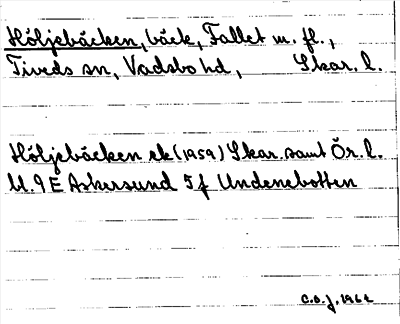 Höljebäcken, bäck, Fallet m. fl.,
Tiveds sn, Vadsbo hd, Skar. l.
Höljebäcken ek (1959) Skar. samt Ör. l.
bl. 9E Askersund 5f Undenebotten
C.O.J. 1962